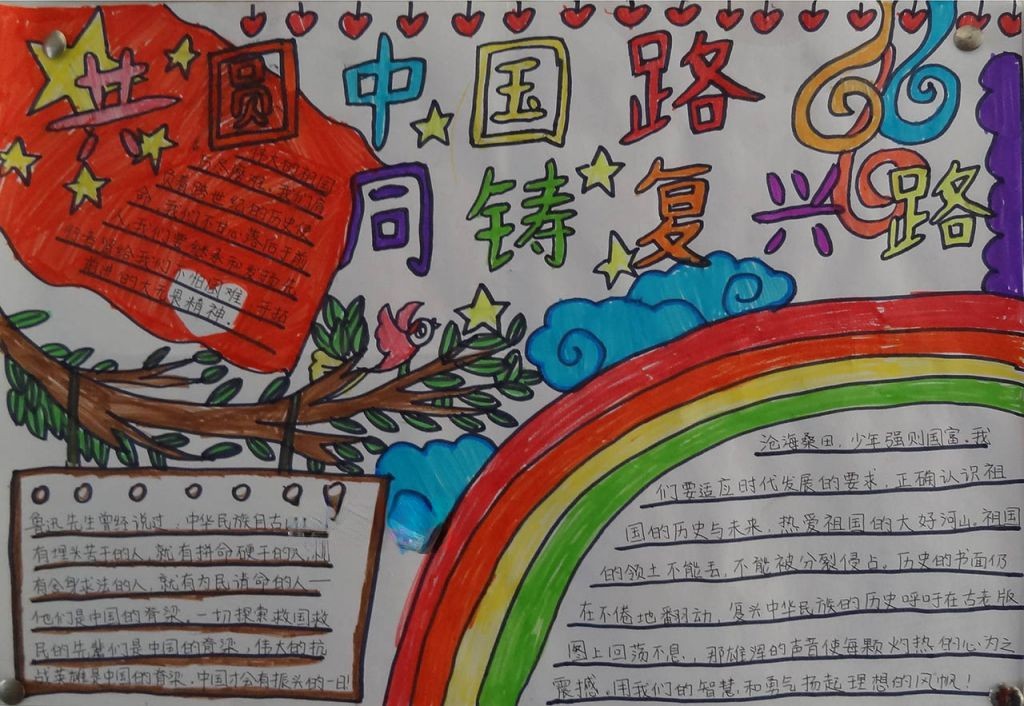 共圆中国路
同铸复兴路
伟大的祖国
我们肩
负着跨世纪的历史使
命,我们不甘心落后于前
人,我们要继承和发扬先
辈留给我们不怕困难
的大无畏精神.
鲁迅先生曾经说过,中华民族自古
有埋头苦干的人,就有拼命硬干的人,
有舍身求法的人,就有为民请命的人一
他们是中国的脊梁,一切探索救国救
民的先辈们是中国的脊梁,伟大的抗
战英雄是中国的脊梁.中国才会有振头的一日
沧海桑田,少年强则国富.我
们要适应时代发展的要求,正确认识祖
国的历史与未来,热爱祖国的大好河山.祖国
的领土不能丢,不能被分裂侵占。历史的书面仍
在不倦地翻动,复兴中华民族的历史呼吁在古老版
图上回荡不息,那雄浑的声音使每颗灼热的心为之
震撼.用我们的智慧和勇气扬起理想的风帆!